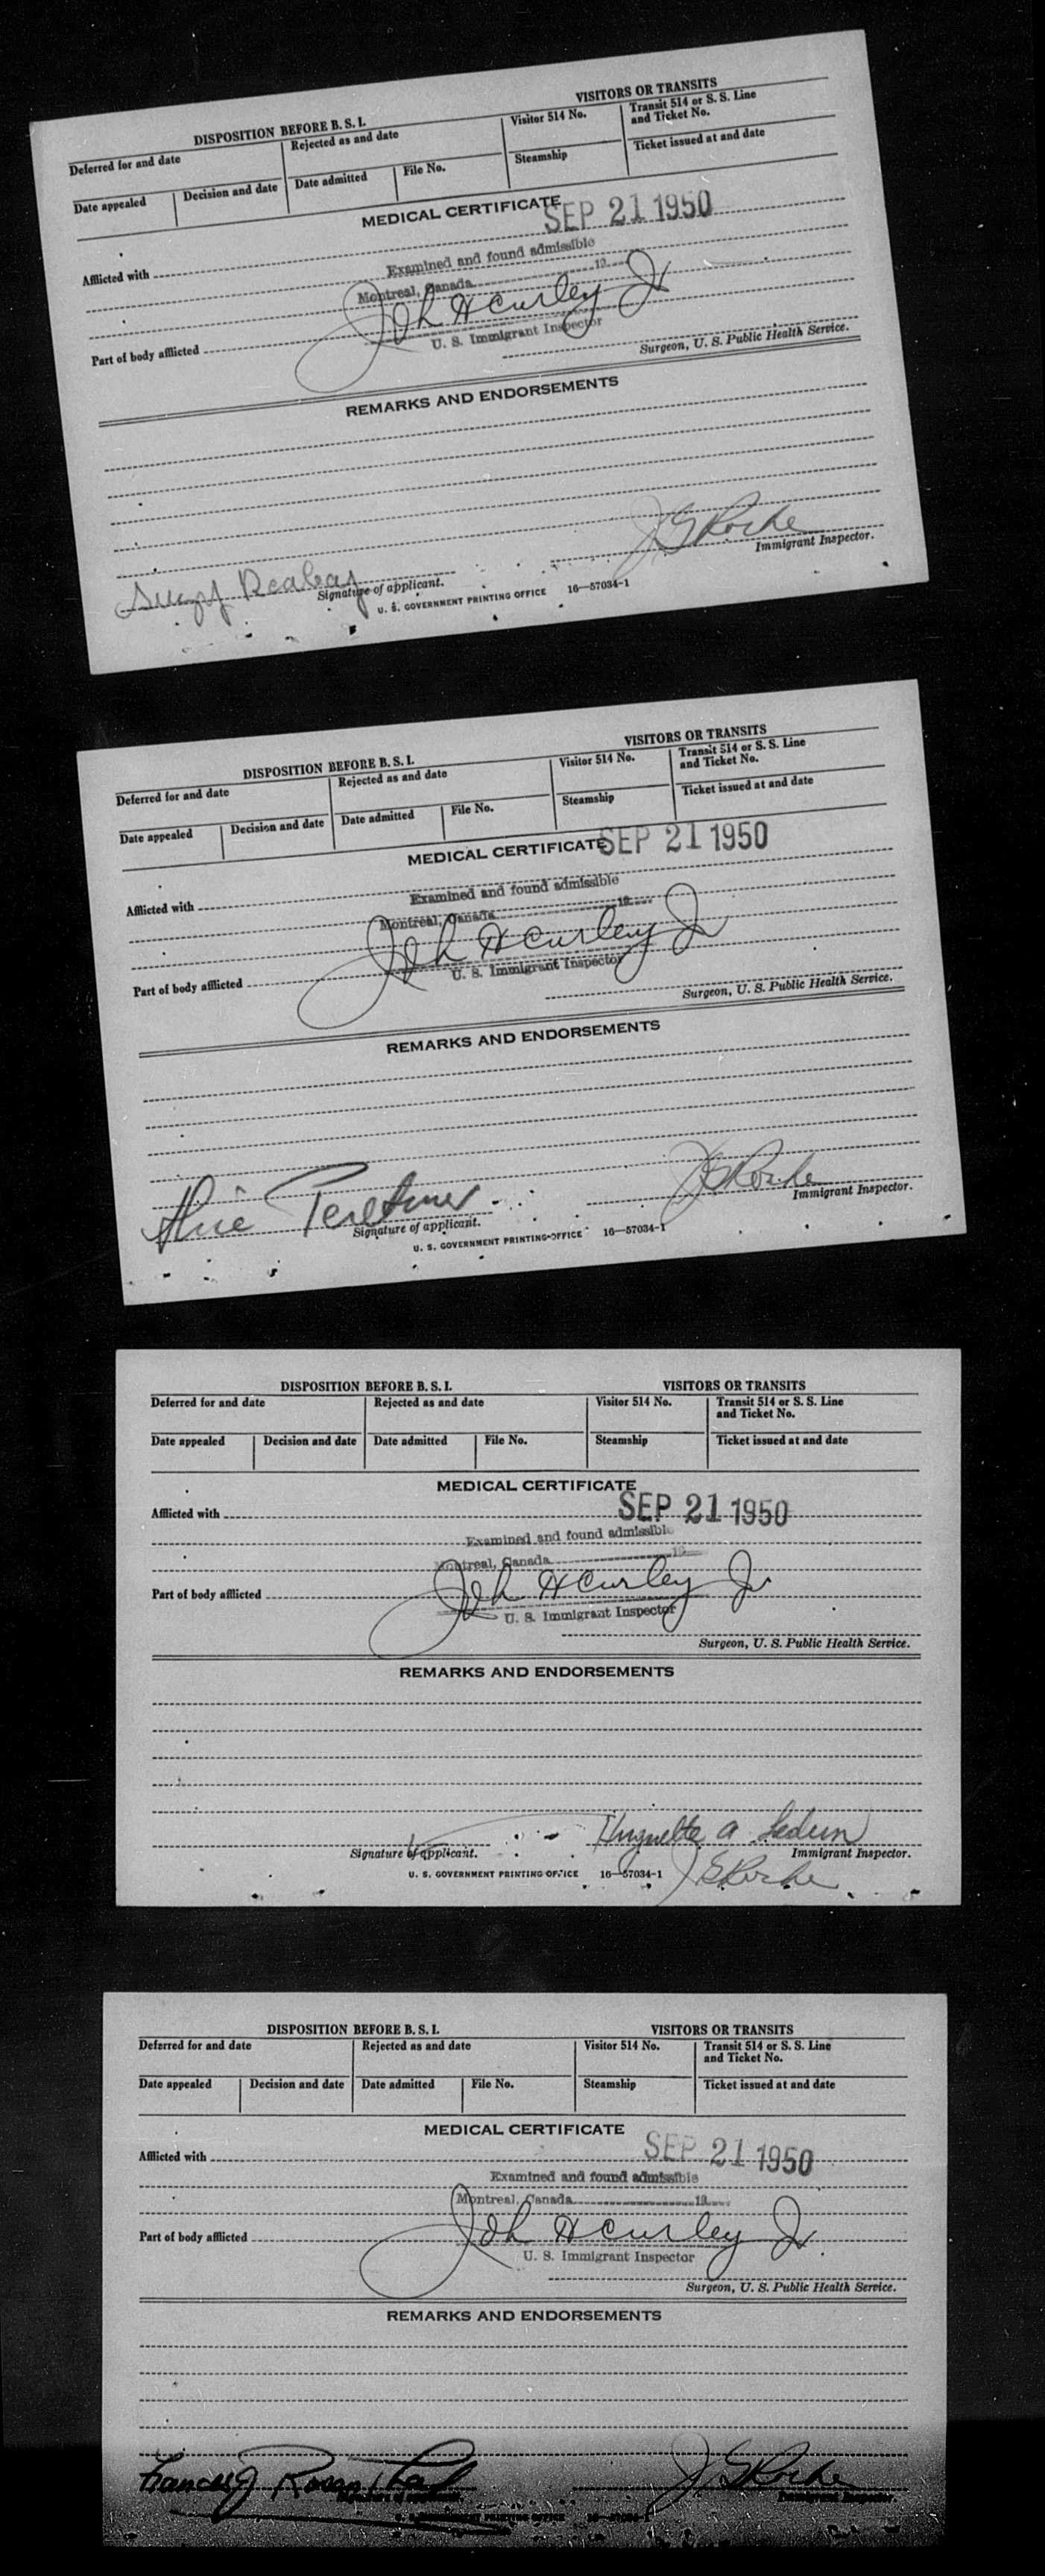 DISPOSITION BEFORE B. S. I. VISITORS OR TRANSITS
Deferred for and date Rejected as and date Visitor 514 No. Transit 514 or S. S. Line and Ticket No.
Date appealed Decision and date Date admitted File No. Steamship Ticket issued at and date
MEDICAL CERTIFICATE
SEP 21 1950
Afflicted with
Examined and found admissible
Montreal, Canada 19
John H Curley Jr
U. S. Immigrant Inspector
Part of body afflicted
Surgeon, U. S. Public Health Service.
REMARKS AND ENDORSEMENTS
J G Roche
Immigrant Inspector.
Signature of applicant.
U. S. GOVERNMENT PRINTING OFFICE 16—57034-1
DISPOSITION BEFORE B. S. I. VISITORS OR TRANSITS
Deferred for and date Rejected as and date Visitor 514 No. Transit 514 or S. S. Line and Ticket No.
Date appealed Decision and date Date admitted File No. Steamship Ticket issued at and date
MEDICAL CERTIFICATE
SEP 21 1950
Afflicted with
Examined and found admissible
Montreal, Canada 19
John H Curley Jr
U. S. Immigrant Inspector
Part of body afflicted
Surgeon, U. S. Public Health Service.
REMARKS AND ENDORSEMENTS
J G Roche
Immigrant Inspector.
Signature of applicant.
U. S. GOVERNMENT PRINTING OFFICE 16—57034-1
DISPOSITION BEFORE B. S. I. VISITORS OR TRANSITS
Deferred for and date Rejected as and date Visitor 514 No. Transit 514 or S. S. Line and Ticket No.
Date appealed Decision and date Date admitted File No. Steamship Ticket issued at and date
MEDICAL CERTIFICATE
SEP 21 1950
Afflicted with
Examined and found admissible
Montreal, Canada 19
John H Curley Jr
U. S. Immigrant Inspector
Part of body afflicted
Surgeon, U. S. Public Health Service.
REMARKS AND ENDORSEMENTS
Huguette a
Signature of applicant. Immigrant Inspector.
U. S. GOVERNMENT PRINTING OFFICE 16—57034-1
J G Roche
DISPOSITION BEFORE B. S. I. VISITORS OR TRANSITS
Deferred for and date Rejected as and date Visitor 514 No. Transit 514 or S. S. Line and Ticket No.
Date appealed Decision and date Date admitted File No. Steamship Ticket issued at and date
MEDICAL CERTIFICATE
SEP 21 1950
Afflicted with
Examined and found admissible
Montreal, Canada 19
John H Curley Jr
U. S. Immigrant Inspector
Part of body afflicted
Surgeon, U. S. Public Health Service.
REMARKS AND ENDORSEMENTS
J G Roche
Signature of applicant. Immigrant Inspector.
U. S. GOVERNMENT PRINTING OFFICE 16—57034-1